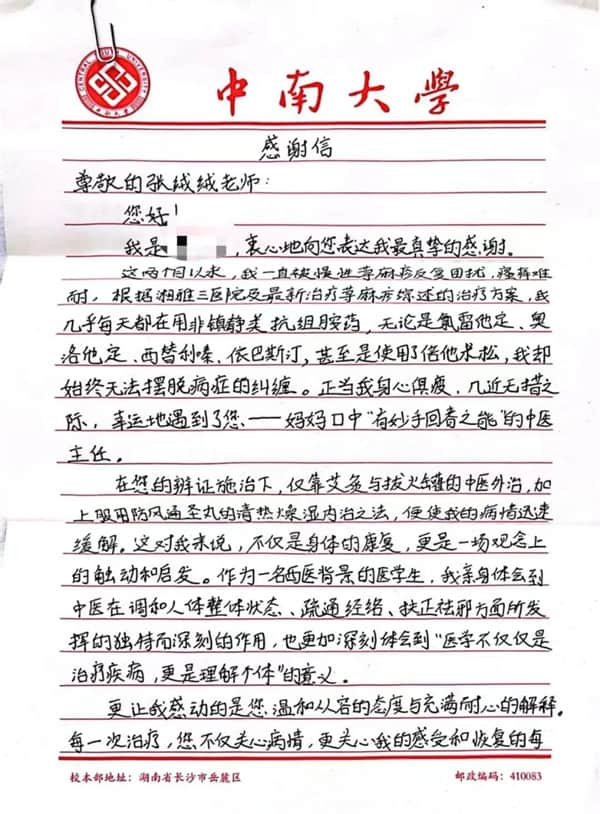 CENTRAL SOUTH UNIVERSITY
中南大學
感谢信
尊敬的张绒绒老师：
您好！
我是，衷心地向您表达我最真挚的感谢。
这两个月以来，我一直被慢性荨麻疹反复困扰，瘙痒难
耐。根据湘雅三医院及最新治疗荨麻疹综述的治疗方案，我
几乎每天都在用非镇静类抗组胺药，无论是氯雷他定、奥
洛他定、西替利嗪、依巴斯汀，甚至是使用了倍他米松，我却
始终无法摆脱病症的纠缠。正当我身心俱疲、几近无措之
际，幸运地遇到了您——妈妈口中“有妙手回春之能”的中医
主任。
在您的辨证施治下，仅靠艾灸与拔火罐的中医外治，加
上服用防风通圣丸的清热燥湿内治之法，便使我的病情迅速
缓解。这对我来说，不仅是身体的康复，更是一场观念上
的触动和启发。作为一名西医背景的医学生，我亲身体会到
中医在调和人体整体状态、疏通经络、扶正祛邪方面所发
挥的独特而深刻的作用，也更加深刻体会到“医学不仅仅是
治疗疾病，更是理解个体”的意义。
更让我感动的是您温和从容的态度与充满耐心的解释。
每一次治疗，您不仅关心病情，更关心我的感受和恢复的每
校本部地址：湖南省长沙市岳麓区
邮政编码：410083